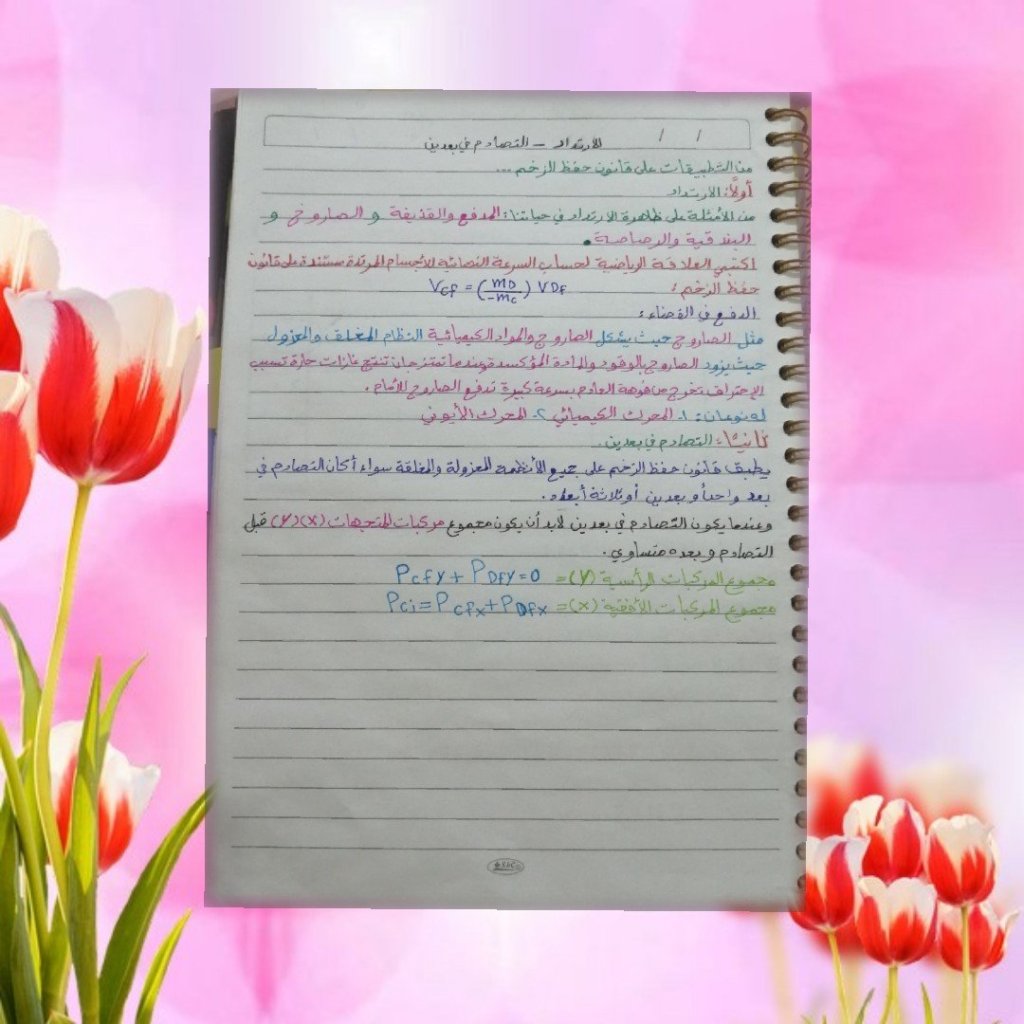 / /
الارتداد - التصادم في بعدين
من التطبيقات على قانون حفظ الزخم ...
أولاً: الارتداد
من الأمثلة على ظاهرة الارتداد في حياتنا: المدفع والقذيفة و الصاروخ و
البندقية والرصاصة.
اكتبي العلاقة الرياضية لحساب السرعة النهائية للأجسام المرتدة مستندة على قانون
حفظ الزخم: VCf = (mD/-mC) VDf
الدفع في الفضاء:
مثل الصاروخ حيث يشكل الصاروخ والمواد الكيميائية النظام المغلف والمعزول
حيث يزود الصاروخ بالوقود والمادة المؤكسدة عندما تمتزجان تنتج غازات حارة تسبب
الاحتراف تخرج من فوهة العادم بسرعة كبيرة تدفع الصاروخ للأمام.
له نوعان: ١. المحرك الكيميائي ٢. المحرك الأيوني
ثانيًا: التصادم في بعدين.
يطبق قانون حفظ الزخم على جميع الأنظمة المعزولة والمغلقة سواء أكان التصادم في
بعد واحد أو بعدين أو ثلاثة أبعاد.
وعندما يكون التصادم في بعدين لابد أن يكون مجموع مركبات المتجهات (x)(y) قبل
التصادم وبعده متساوي.
مجموع المركبات الرأسية (y)= PCfy + PDfy = 0
مجموع المركبات الأفقية (x)= PCi = PCfx + PDfx